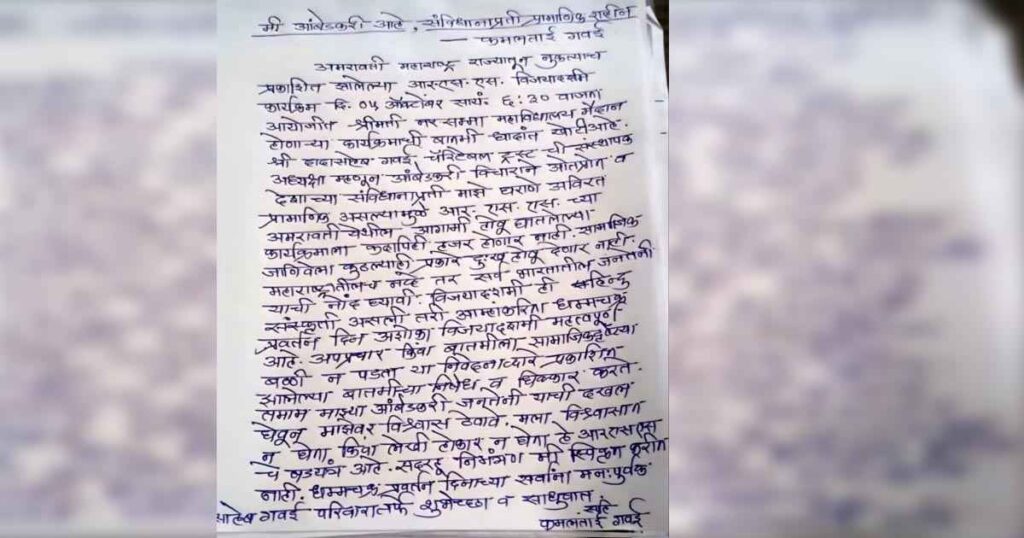 मी आंबेडकरी आहे, संविधानाप्रती प्रामाणिक राहीन
— कमलताई गवई
अमरावती महाराष्ट्र राज्यातून नुकत्याच
प्रकाशित झालेल्या आर.एस.एस. विजयादशमी
कार्यक्रम दि. ०५ ऑक्टोबर सायं. ६:३० वाजता
आयोजीत श्रीमती नरसम्मा महाविद्यालय मैदान
होणाऱ्या कार्यक्रमाची बातमी धादांत खोटी आहे.
श्री दादासाहेब गवई चॅरिटेबल ट्रस्ट ची संस्थापक
अध्यक्षा म्हणून आंबेडकरी विचाराने ओतप्रोत व
देशाच्या संविधानाप्रती माझे घराणे अविरत
प्रामाणिक असल्यामुळे आर. एस. एस. च्या
अमरावती येथील आगामी होवू घातलेल्या
कार्यक्रमाला कदापिही हजर होणार नाही. सामाजिक
जाणिवेला कुठल्याही प्रकारे दुःख होवू देणार नाही.
महाराष्ट्रातीलच नव्हे तर सर्व भारतातील जनतेनी
याची नोंद घ्यावी. विजयादशमी ही हिन्दु
संस्कृती असली तरी आम्हाकरिता धम्मचक्र
प्रवर्तन दिन अशोका विजयादशमी महत्वपूर्ण
आहे. अपप्रचार किंवा बातमीला सामाजिकदृष्ट्या
बळी न पडता या निवेदनाव्दारे प्रकाशित
झालेल्या बातमीच्या निषेध व धिक्कार करते.
तमाम माझ्या आंबेडकरी जनतेनी याची दखल
घेवून माझेवर विश्वास ठेवावे. मला विश्वासात
न घेता किंवा लेखी होकार न घेता हे आरएसएस
चे षडयंत्र आहे. सदरहू निमंत्रण मी स्विकृत करीत
नाही. धम्मचक्र प्रवर्तन दिनाच्या सर्वांना मनःपुर्वक
साहेब गवई परिवारातर्फे शुभेच्छा व साधुवाद
कमलताई गवई